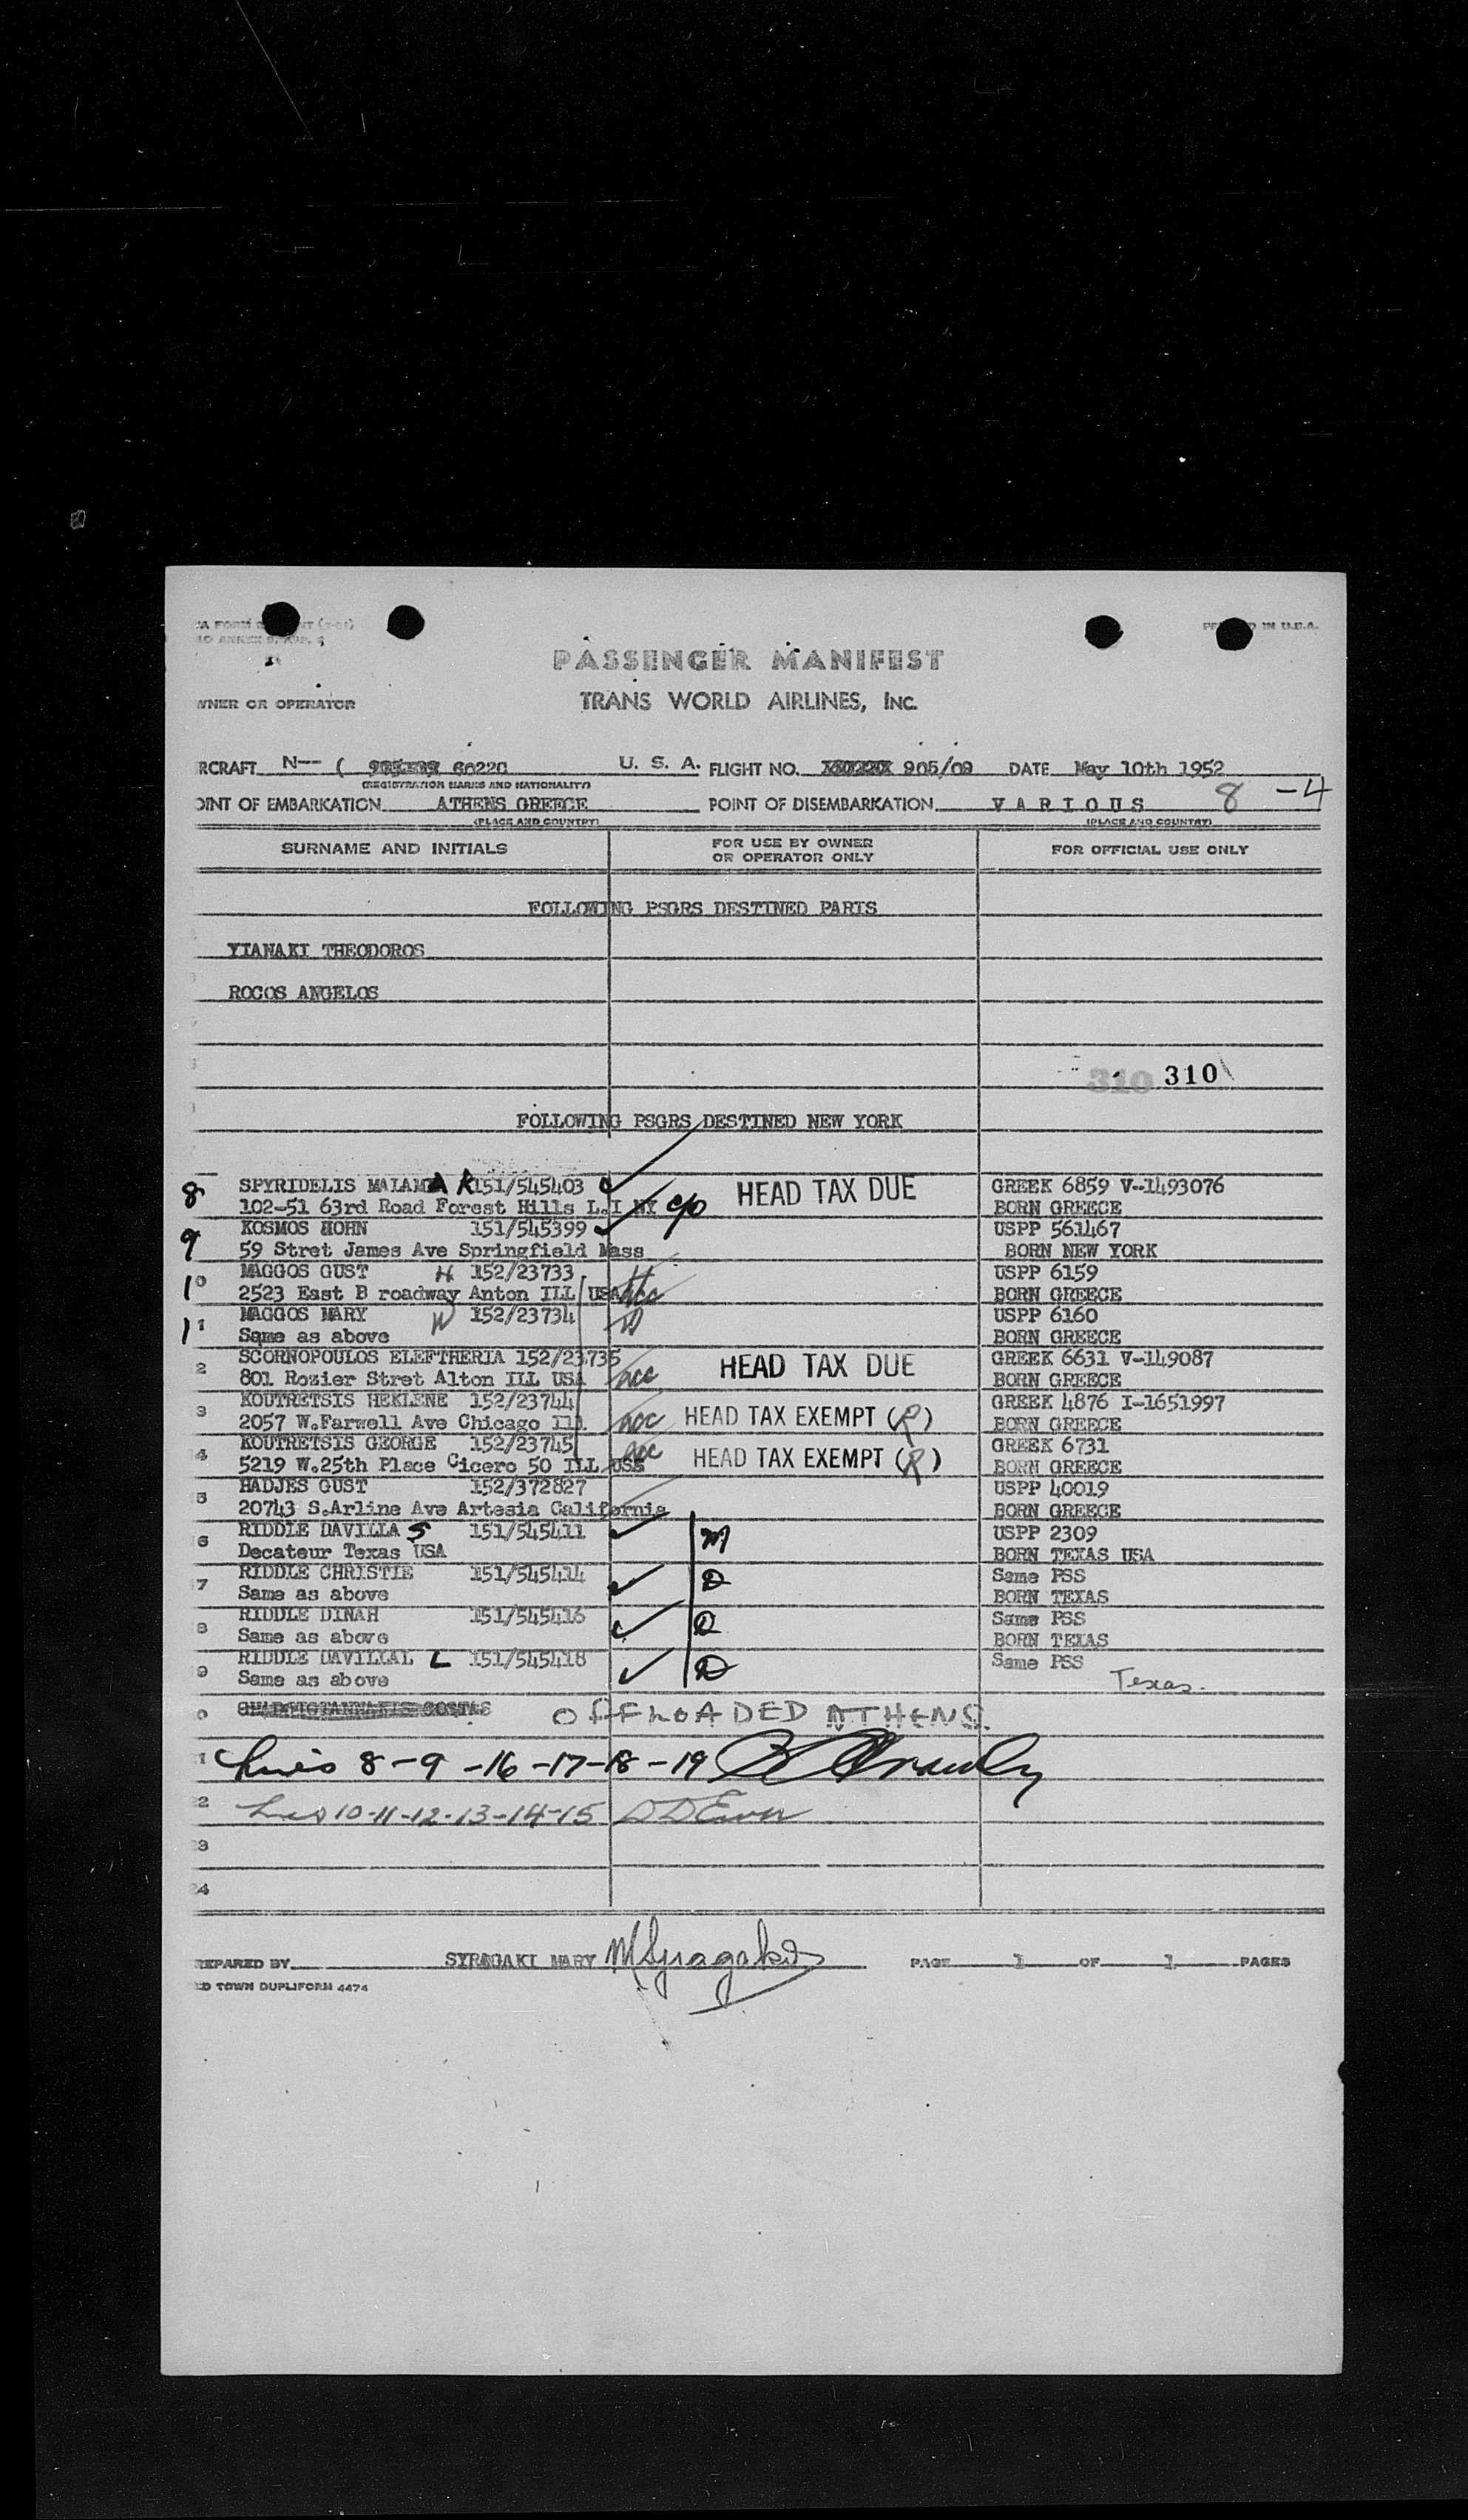 PASSENGER MANIFEST
TRANS WORLD AIRLINES, INC.
WNER OR OPERATOR
RCRAFT N-- ( 6022C U. S. A. FLIGHT NO. 905/09 DATE May 10th 1952
(REGISTRATION MARKS AND NATIONALITY)
OINT OF EMBARKATION ATHENS GREECE POINT OF DISEMBARKATION V A R I O U S 8 -4
(PLACE AND COUNTRY) (PLACE AND COUNTRY)
SURNAME AND INITIALS FOR USE BY OWNER OR OPERATOR ONLY FOR OFFICIAL USE ONLY
FOLLOWING PSGRS DESTINED PARIS
YIANAKI THEODOROS
ROCOS ANGELOS
310 310
FOLLOWING PSGRS DESTINED NEW YORK
8 SPYRIDELIS MALAMA K 151/545403 HEAD TAX DUE GREEK 6859 V-1493076
102-51 63rd Road Forest Hills L.I NY c/o BORN GREECE
9 KOSMOS HOHN 151/545399 USPP 561467
59 Stret James Ave Springfield Mass BORN NEW YORK
10 MAGGOS GUST H 152/23733 H USPP 6159
2523 East B roadway Anton ILL USA acc BORN GREECE
11 MAGGOS MARY W 152/23734 W USPP 6160
Same as above BORN GREECE
2 SCORNOPOULOS ELEFTHERIA 152/23735 HEAD TAX DUE GREEK 6631 V-149087
801 Rozier Stret Alton ILL USA acc BORN GREECE
3 KOUTRETSIS HEKLENE 152/23744 GREEK 4876 I-1651997
2057 W.Farwell Ave Chicago Ill acc HEAD TAX EXEMPT (R) BORN GREECE
4 KOUTRETSIS GEORGE 152/23745 acc HEAD TAX EXEMPT (R) GREEK 6731
5219 W.25th Place Cicero 50 ILL USA BORN GREECE
5 HADJES GUST 152/372827 USPP 40019
20743 S.Arline Ave Artesia California BORN GREECE
6 RIDDLE DAVILLA S 151/545411 M USPP 2309
Decateur Texas USA BORN TEXAS USA
7 RIDDLE CHRISTIE 151/545414 D Same PSS
Same as above BORN TEXAS
8 RIDDLE DINAH 151/545416 D Same PSS
Same as above BORN TEXAS
9 RIDDLE DAVILLAL L 151/545418 D Same PSS
Same as above Texas.
OFFLOADED ATHENS.
21 Lines 8-9-16-17-18-19
22 Lines 10-11-12-13-14-15
23
24
REPARED BY SYRAGAKI MARY PAGE 1 OF 1 PAGES
ED TOWN DUPLIFORM 4474